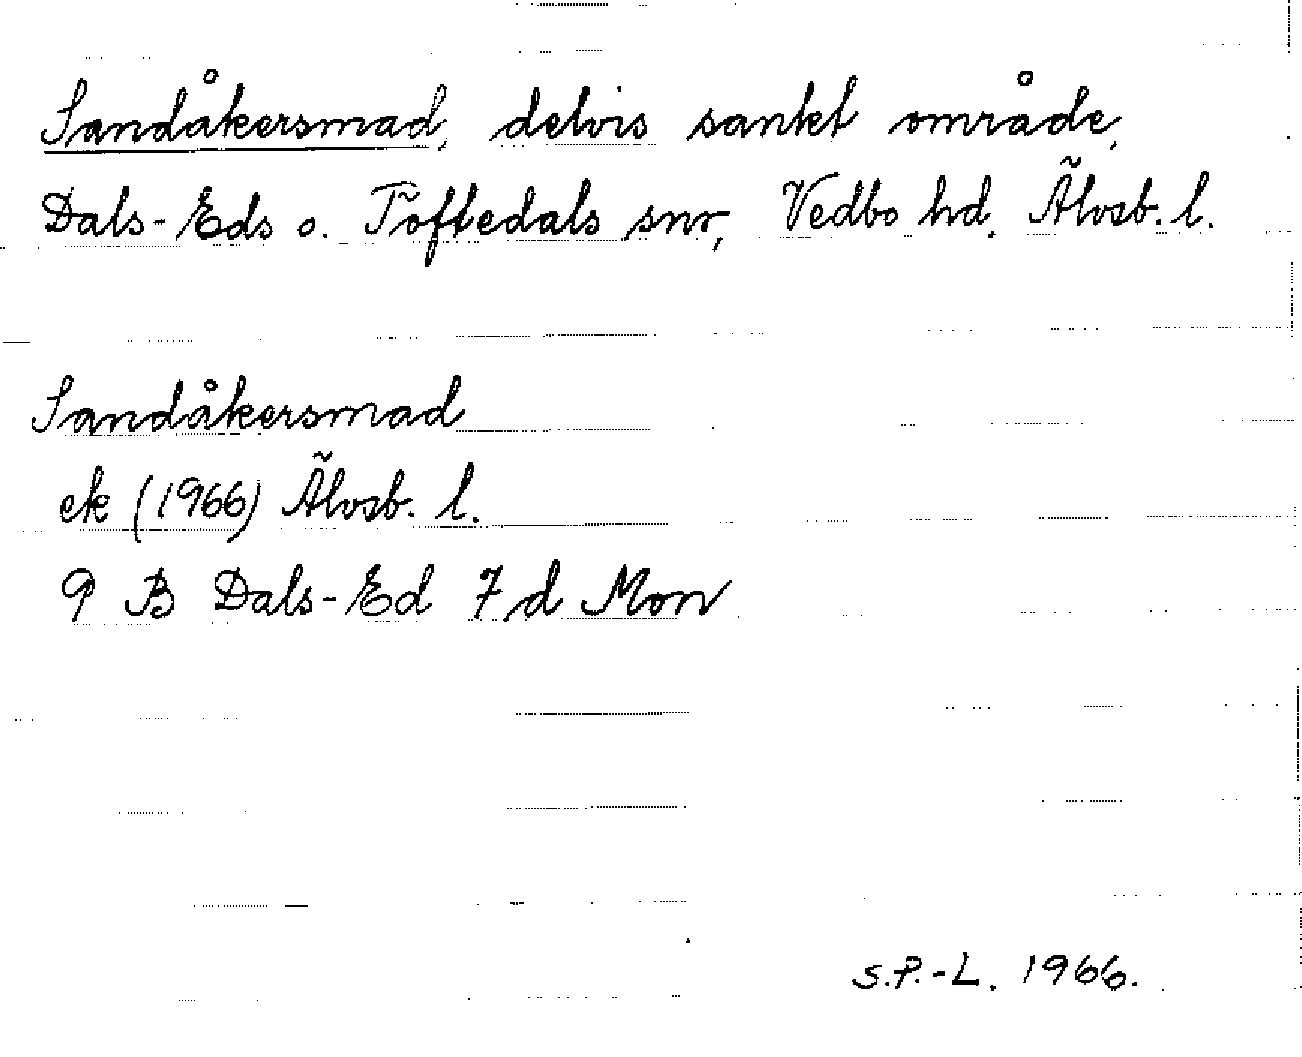 Sandåkersmad, delvis sankt område,
Dals-Eds o. Töftedals snr, Vedbo hd. Älvsb. l.
Sandåkersmad
ek (1966) Älvsb. l.
9 B Dals-Ed 7 d Mon
S.P.-L. 1966.